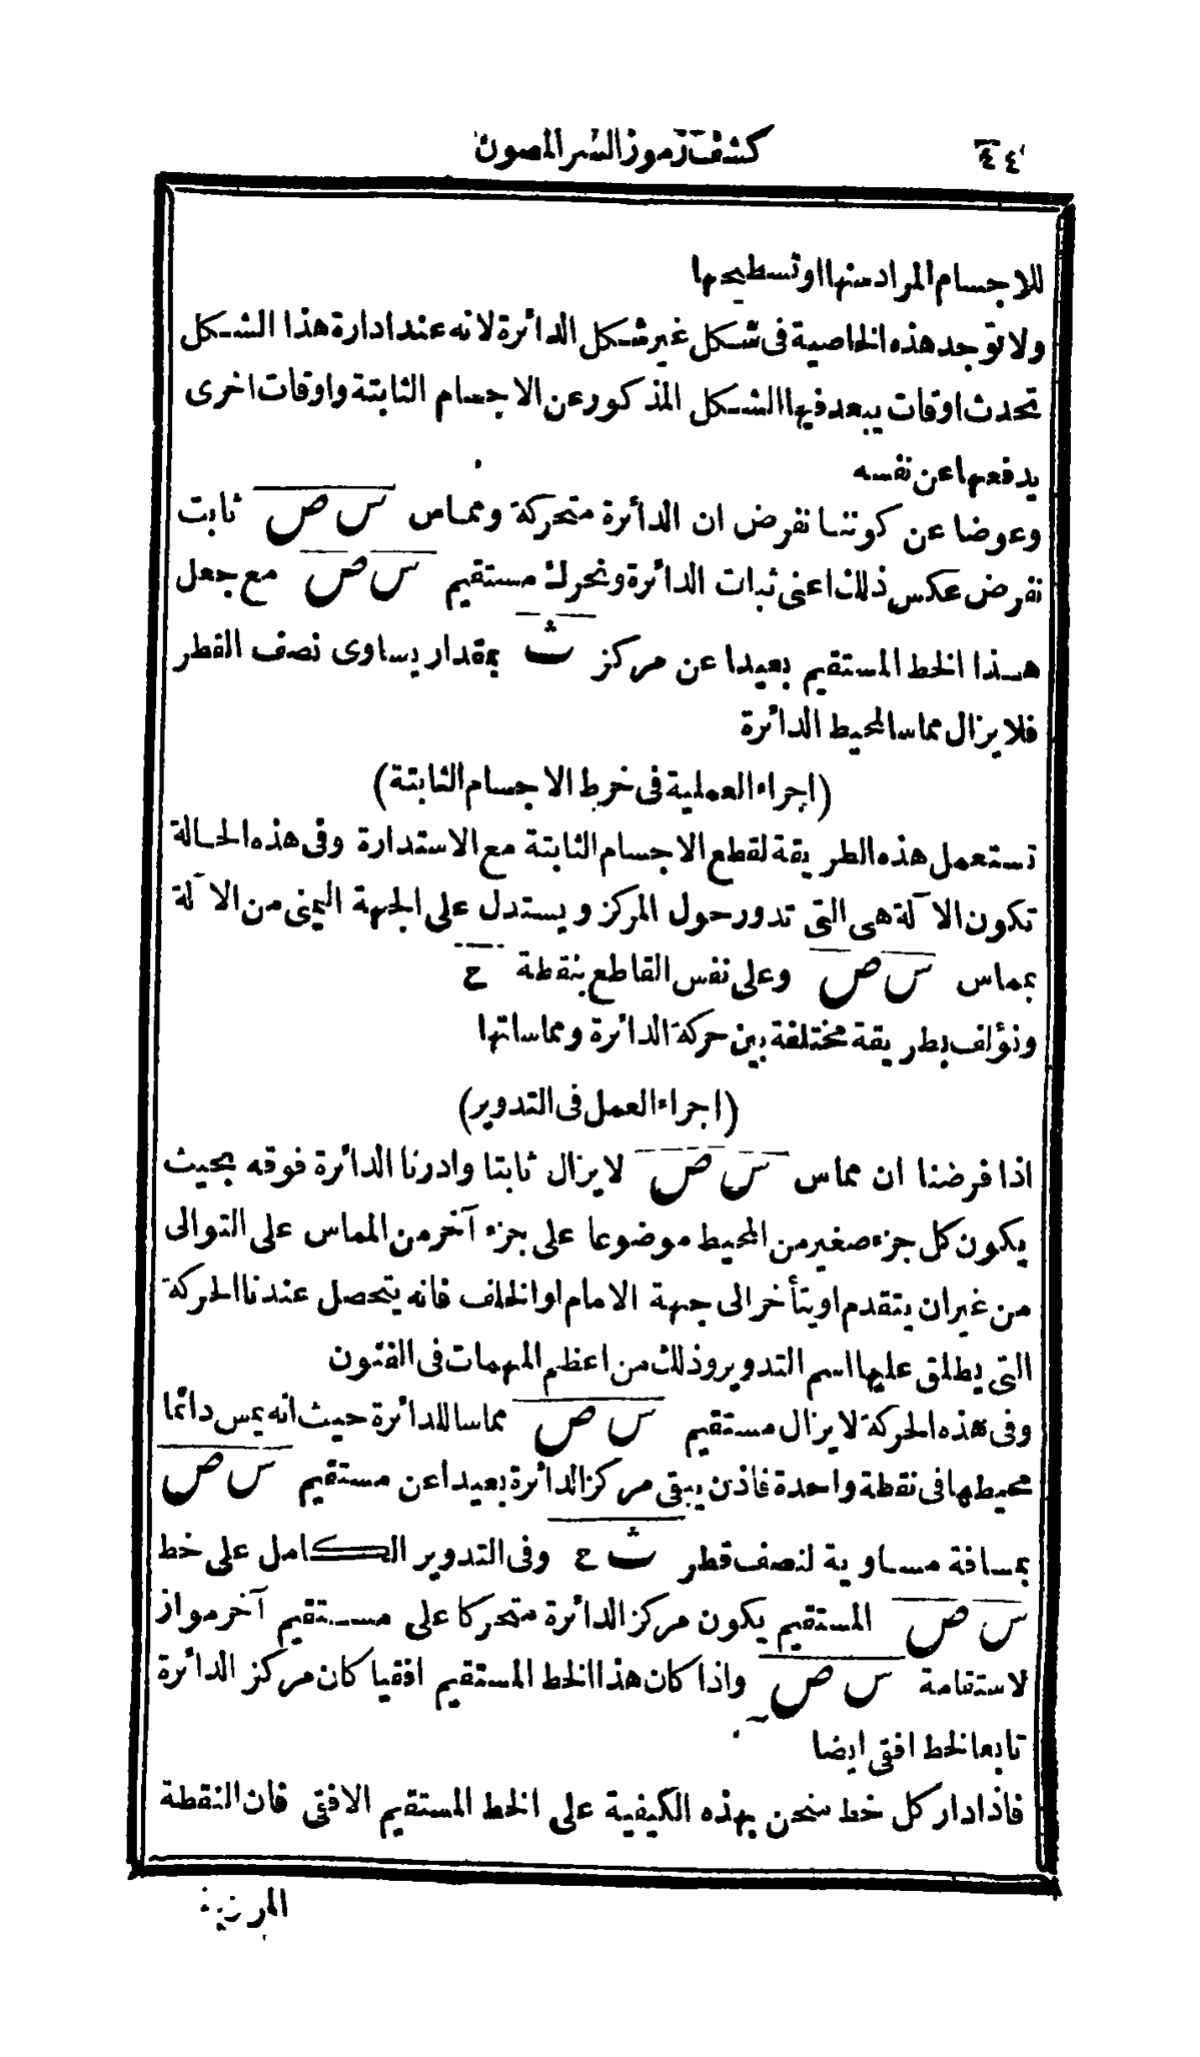 ٤٤
كشف رموز السر المصون
للاجسام المراد منها او تسطيحها
ولا توجد هذه الخاصية فى شكل غير شكل الدائرة لانه عند ادارة هذا الشكل
تحدث اوقات يبعد فيها الشكل المذكور عن الاجسام الثابتة واوقات اخرى
يدفعها عن نفسه
وعوضا عن كوننا نفرض ان الدائرة متحركة ومماس س ص ثابت
نفرض عكس ذلك اعنى ثبات الدائرة ونحرك مستقيم س ص مع جعل
هذا الخط المستقيم بعيدا عن مركز ث بمقدار يساوى نصف القطر
فلا يزال مماسا لمحيط الدائرة
(اجراء العملية فى خرط الاجسام الثابتة)
تستعمل هذه الطريقة لقطع الاجسام الثابتة مع الاستدارة وفى هذه الحالة
تكون الآلة هى التى تدور حول المركز ويستدل على الجهة اليمنى من الآلة
بمماس س ص وعلى نفس القاطع بنقطة ح
ونؤلف بطريقة مختلفة بين حركة الدائرة ومماساتها
(اجراء العمل فى التدوير)
اذا فرضنا ان مماس س ص لا يزال ثابتا وادرنا الدائرة فوقه بحيث
يكون كل جزء صغير من المحيط موضوعا على جزء آخر من المماس على التوالى
من غير ان يتقدم او يتأخر الى جهة الامام او الخلف فانه يتحصل عندنا الحركة
التى يطلق عليها اسم التدوير وذلك من اعظم المهمات فى الفنون
وفى هذه الحركة لا يزال مستقيم س ص مماسا للدائرة حيث انه يمس دائما
محيطها فى نقطة واحدة فاذن يبقى مركز الدائرة بعيدا عن مستقيم س ص
بمسافة مساوية لنصف قطر ث ح وفى التدوير الكامل على خط
س ص المستقيم يكون مركز الدائرة متحركا على مستقيم آخر مواز
لاستقامة س ص واذا كان هذا الخط المستقيم افقيا كان مركز الدائرة
تابعا لخط افقى ايضا
فاذا دار كل خط منحن بهذه الكيفية على الخط المستقيم الافقى فان النقطة